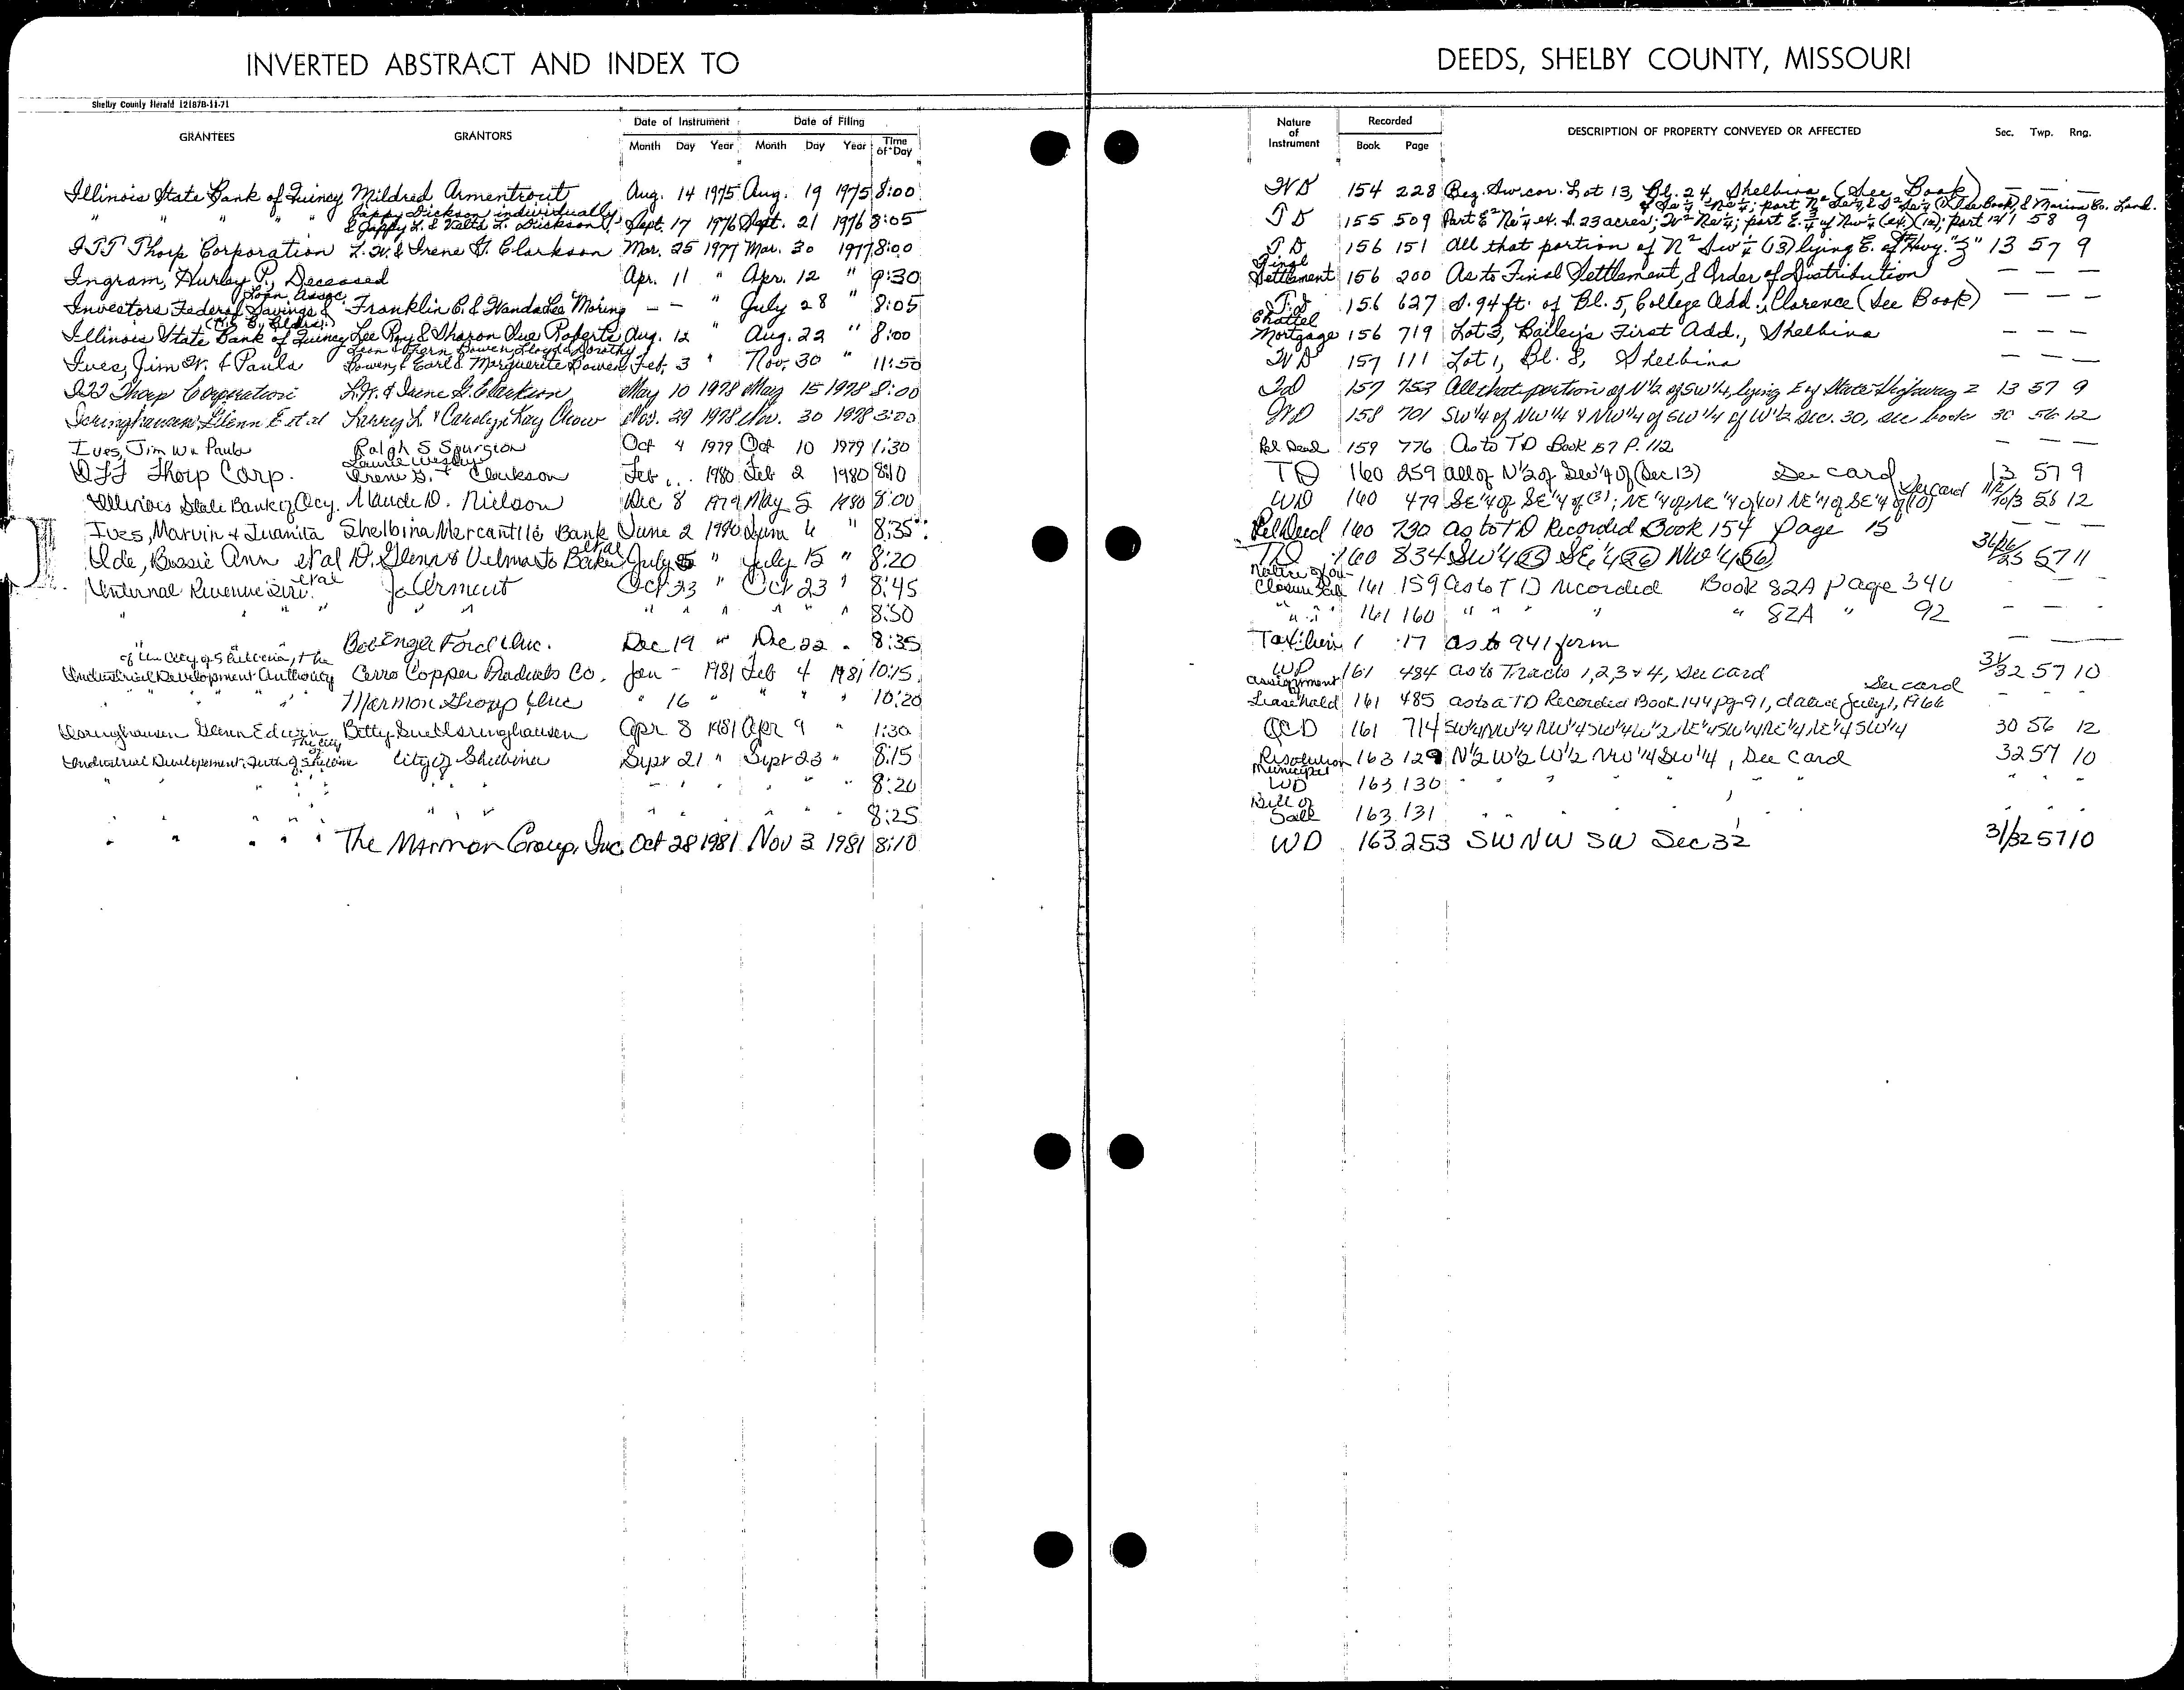 INVERTED ABSTRACT AND INDEX TO DEEDS, SHELBY COUNTY, MISSOURI
Shelby County Herald 12187B-11-71
GRANTEES GRANTORS Date of Instrument Date of Filing Nature of Instrument Recorded DESCRIPTION OF PROPERTY CONVEYED OR AFFECTED Sec. Twp. Rng.
Month Day Year Month Day Year Time of Day Book Page
Illinois State Bank of Quincy Mildred Armentrout Aug. 14 1975 Aug. 19 1975 8:00 WD 154 228 Beg. Sw. cor. Lot 13, Bl. 24, Shelbina (See Book) — — —
" " " " Jappy Dickson individually & Jappy L. & Velta L. Dickson Sept. 17 1976 Sept. 21 1976 8:05 TD 155 509 Part E² Ne¼ ex. S. 23 acres; W² Ne¼; part 12/1 58 9
ITT Thorp Corporation L.W. & Irene G. Clarkson Mar. 25 1977 Mar. 30 1977 8:00 TD 156 151 All that portion of N² Sw¼ (13) lying E. of St. Hwy. "Z" 13 57 9
Ingram, Hurley P., Deceased Apr. 11 " Apr. 12 " 9:30 Final Settlement 156 200 As to Final Settlement, & Order of Distribution — — —
Investors Federal Savings & Loan Assoc. Franklin C. & Wanda Lee Moring — — " July 28 " 8:05 TD 156 627 S. 94 ft. of Bl. 5, College Add., Clarence (See Book) — — —
Illinois State Bank of Quincy Lee Roy & Sharon Sue Roberts Aug. 12 " Aug. 22 " 8:00 Chattel Mortgage 156 719 Lot 3, Bailey's First Add., Shelbina — — —
Ives, Jim W. & Paula Leon & Fern Bowen, Lloyd & Dorothy Bowen, & Earl & Marguerite Bowen Feb. 3 " Nov. 30 " 11:50 WD 157 111 Lot 1, Bl. 8, Shelbina — — —
ITT Thorp Corporation L.W. & Irene G. Clarkson May 10 1978 May 15 1978 8:00 TD 157 753 All that portion of N½ of SW¼, lying E of State Highway Z 13 57 9
Isringhausen, Glenn E et al Larry L. & Carolyn Kay Chow Nov. 29 1978 Nov. 30 1978 3:20 WD 158 701 SW¼ of NW¼ & NW¼ of SW¼ of W½ Sec. 30, see book 30 56 12
Ives, Jim W & Paula Ralph S Spurgion Oct 4 1979 Oct 10 1979 1:30 Rel Deed 159 776 As to TD Book 157 P. 112 — — —
ITT Thorp Corp. Laurie Wesley & Irene G. Clarkson Feb 1980 Feb 2 1980 8:10 TD 160 259 all of N½ of Sw¼ of (Sec 13) See card 13 57 9
Illinois State Bank of Qcy. Maude D. Nielson Dec 8 1979 May 5 1980 8:00 WD 160 479 SE¼ of SE¼ of (3); NE¼ of NE¼ of (10) NE¼ of SE¼ of (10) See card 56 12
Ives, Marvin & Juanita Shelbina Mercantile Bank June 2 1980 June 6 " 8:35 Rel Deed 160 730 as to TD Recorded Book 154 page 15 — — —
Ide, Bossie Ann et al D. Glenn & Velma Jo Baker et al July " July 15 " 8:20 TD 160 834 SW¼ (25) SE¼ (26) NW¼ (36) 57 11
Internal Revenue Serv. et al Jo Arment Oct 23 " Oct 23 " 8:45 161 159 as to TD recorded Book 82A page 340
" " " " " " " " " " " 8:50 " " 161 160 " " " " " 82A " 92 — — —
Bob Enge Ford Inc. Dec 19 " Dec 22 " 8:35 Tax Lien 1 17 as to 941 form — —
Industrial Development Authority of the City of Shelbina, the Cerro Copper Products Co. Jan — 1981 Feb 4 1981 10:15 WD 161 484 as to Tracts 1,2,3 & 4, See card 31/32 57 10
" " " " Marmon Group Inc " 16 " " " " 10:20 Assignment Leasehold 161 485 as to a TD Recorded Book 144 pg 91, dated July 1, 1966 See card
Isringhausen Glenn Edwin Betty Sue Isringhausen Apr 8 1981 Apr 9 " 1:30 QCD 161 714 SW¼NW¼ NW¼SW¼W½NE¼SW¼NE¼NE¼SW¼ 30 56 12
Industrial Development Auth of The City of Shelbina City of Shelbina Sept 21 " Sept 23 " 8:15 Resolution 163 129 N½ W½ W½ NW¼ SW¼, See Card 32 57 10
" " " " " " " " " " 8:20 Municipal WD 163 130 " " " " " "
" " " " " " " " " " 8:25 Bill of Sale 163 131 " " " " " "
" " " " The Marmon Group, Inc Oct 28 1981 Nov 3 1981 8:10 WD 163 253 SW NW SW Sec 32 31/32 57 10